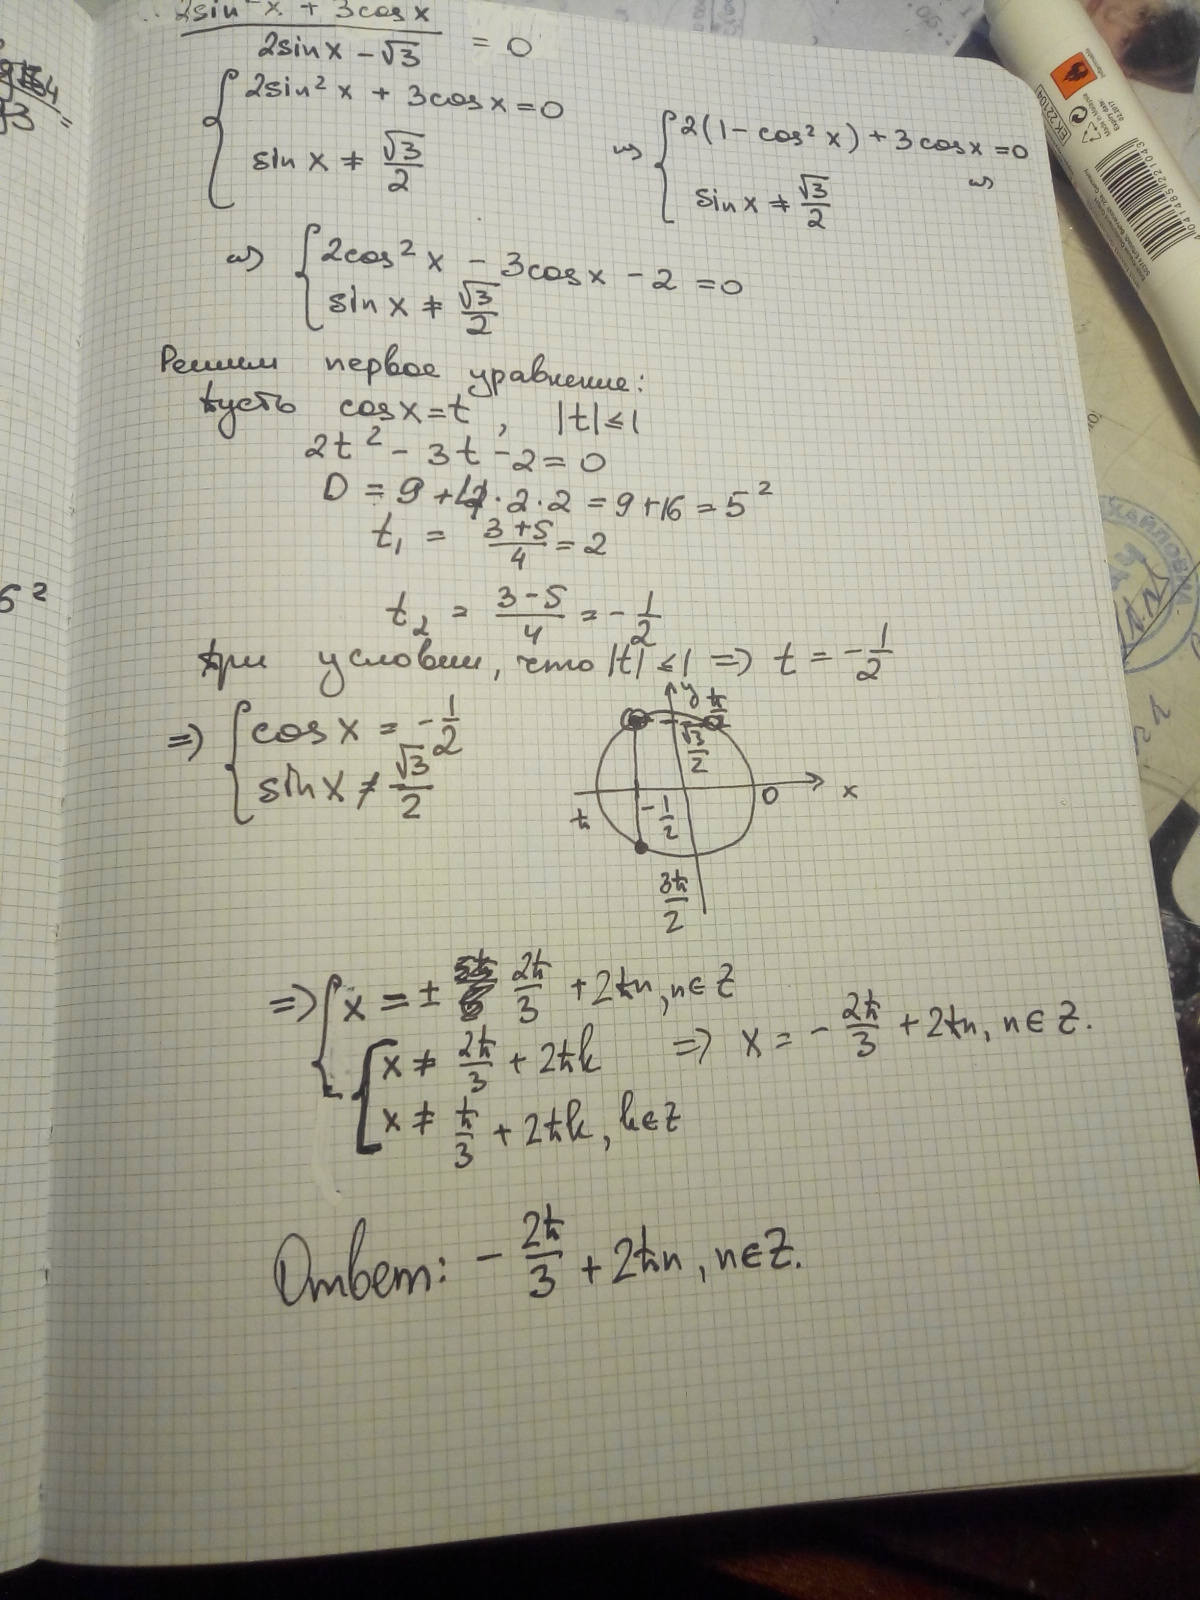 2sin²x + 3cosx / 2sinx − √3 = 0
{ 2sin²x + 3cosx = 0
sinx ≠ √3/2
⇔ { 2(1 − cos²x) + 3cosx = 0 ⇔
sinx ≠ √3/2
⇔ { 2cos²x − 3cosx − 2 = 0
sinx ≠ √3/2
Решим первое уравнение:
пусть cosx = t, |t| ≤ 1
2t² − 3t − 2 = 0
D = 9 + 4·2·2 = 9 + 16 = 5²
t₁ = 3+5/4 = 2
t₂ = 3−5/4 = −1/2
при условии, что |t| ≤ 1 => t = −1/2
=> { cosx = −1/2
sinx ≠ √3/2
y
√3/2
π
−1/2
0
x
3π/2
=> { x = ± 2π/3 + 2πn, n∈Z
[ x ≠ 2π/3 + 2πk
x ≠ π/3 + 2πk, k∈Z
=> x = − 2π/3 + 2πn, n∈Z.
Ответ: − 2π/3 + 2πn, n∈Z.
5²
EK 22104
Made in Malaysia
Expiry date:
02.2017